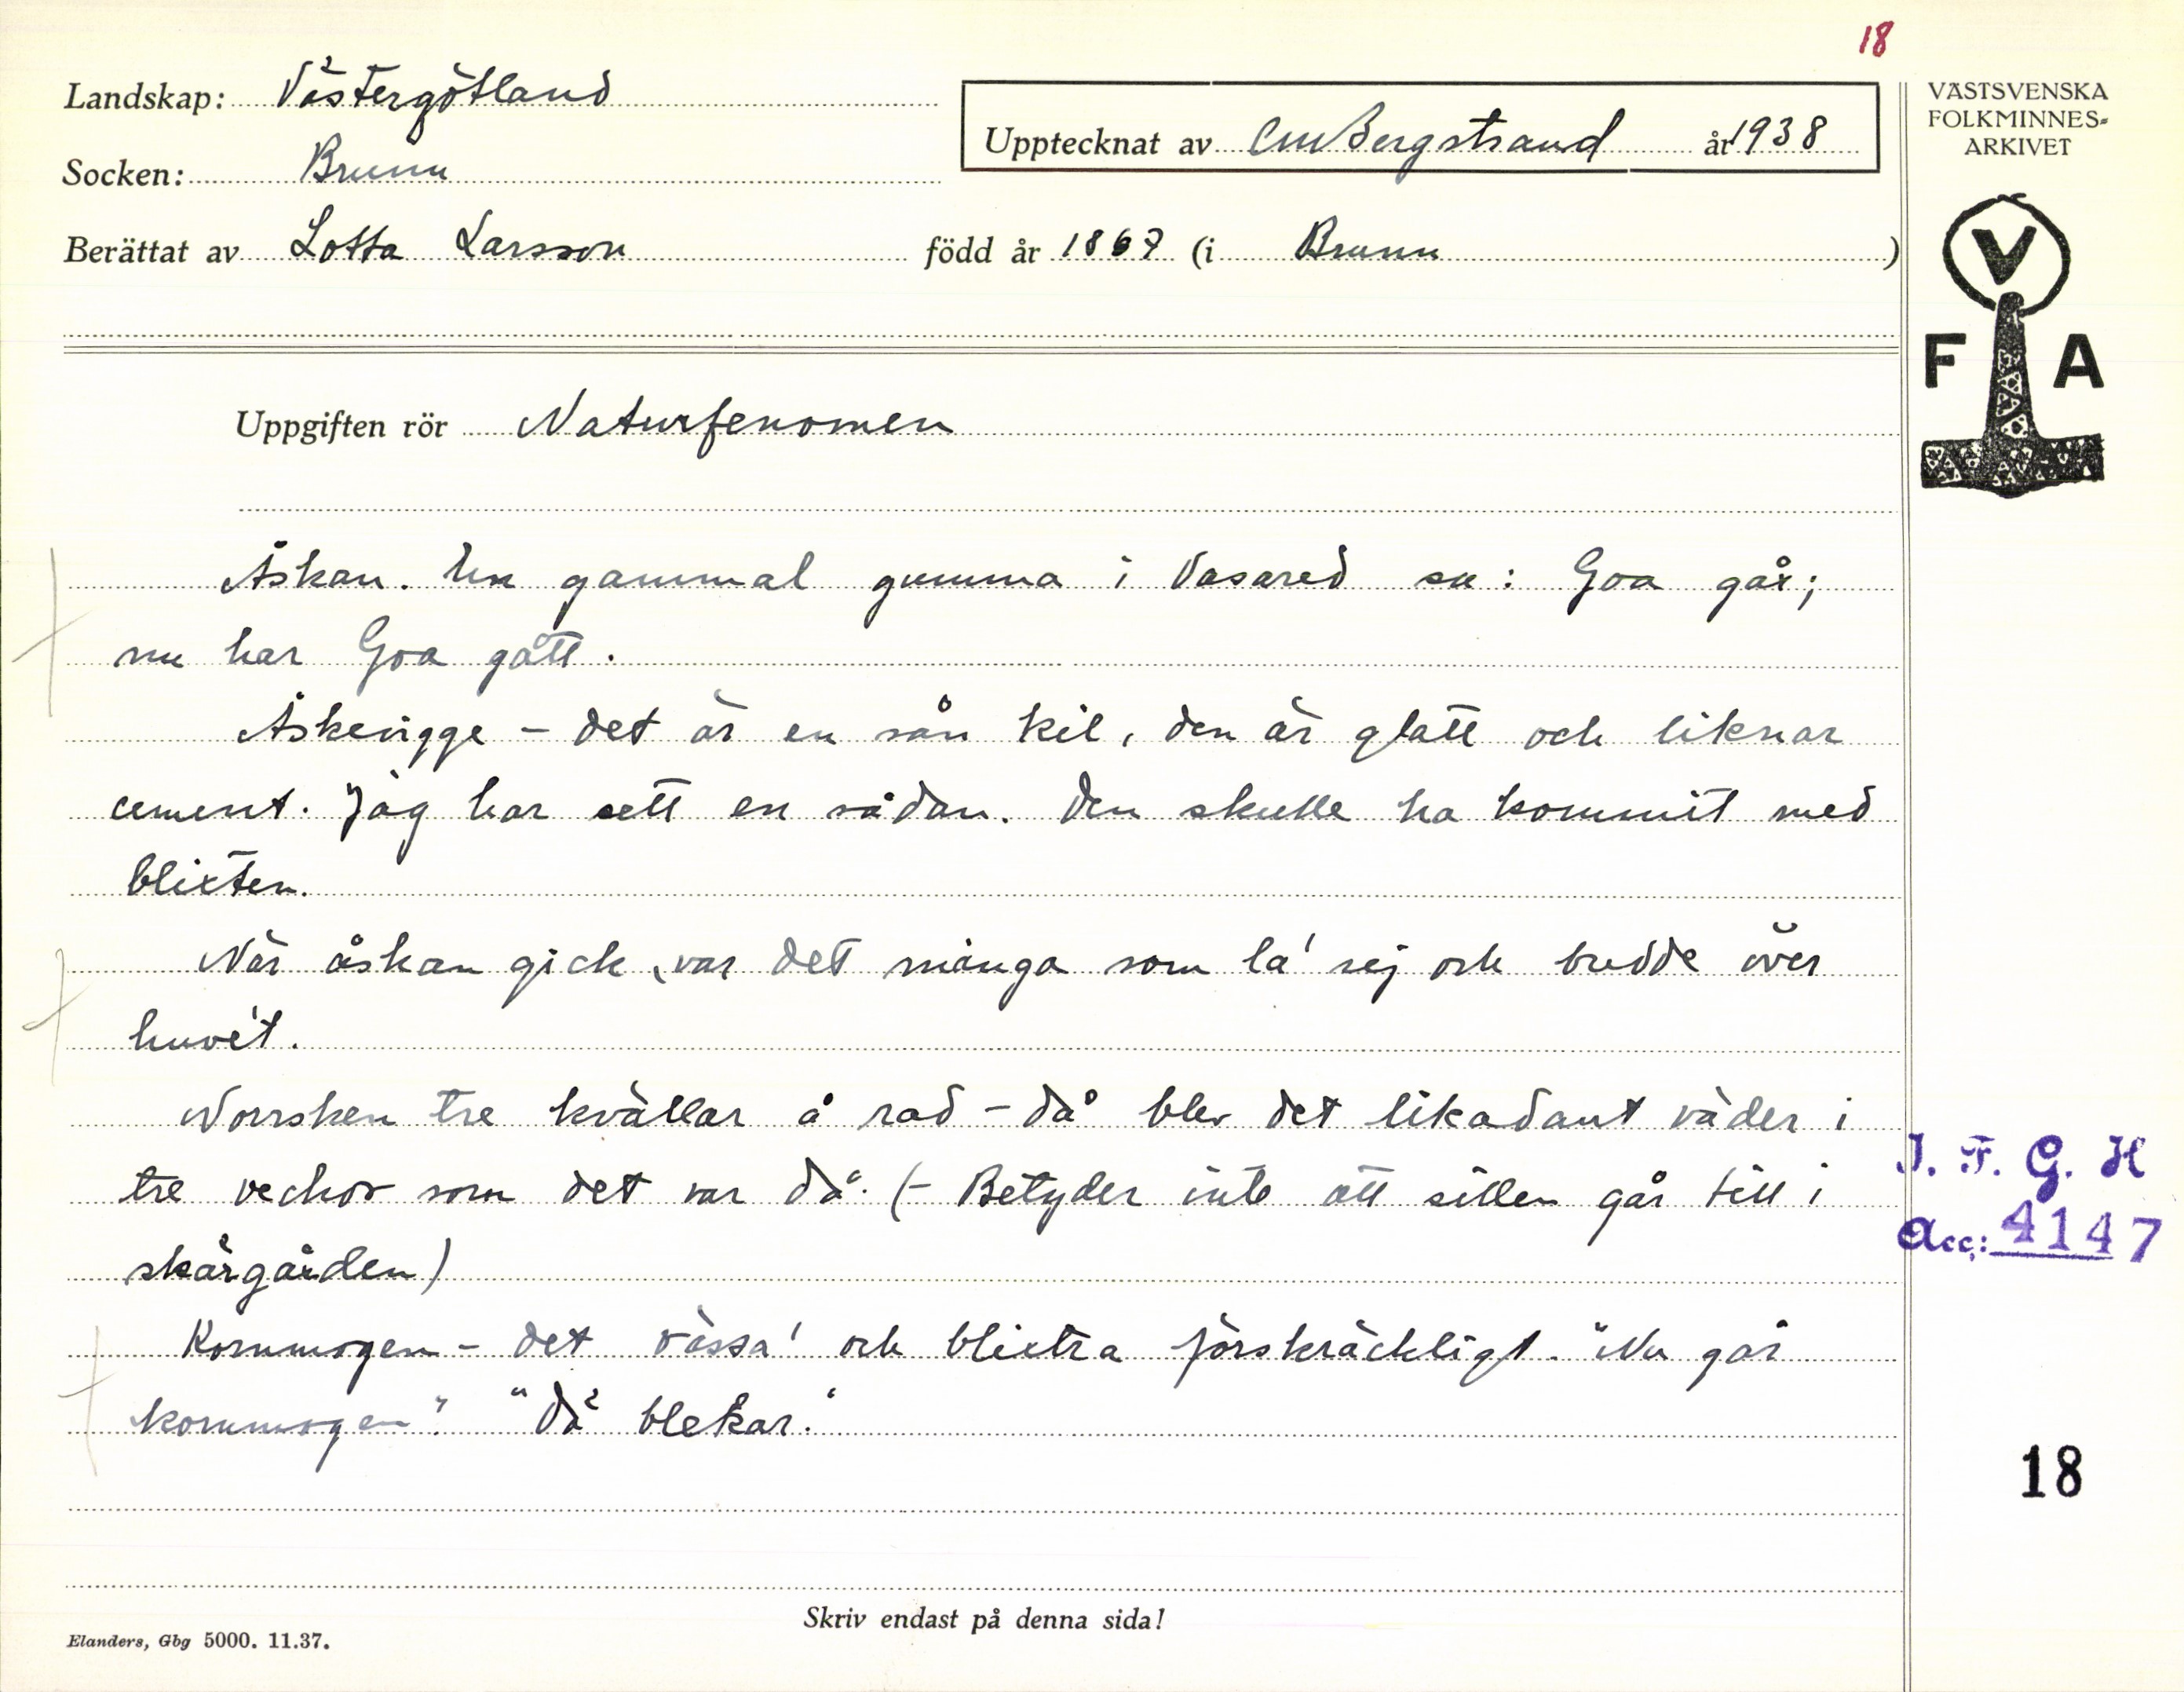 18
Landskap: Västergötland
Socken: Brunn
Upptecknat av CM Bergstrand år 1938
VÄSTSVENSKA
FOLKMINNES-
ARKIVET
Berättat av Lotta Larsson född år 1867 (i Brunn)
V
F A
Uppgiften rör Naturfenomen
Åskan. En gammal gumma i Vasared sa: Goa går;
nu har Goa gått.
Åskevigge - det är en sån kil, den är glatt och liknar
cement. Jag har sett en sådan. Den skulle ha kommit med
blixten.
När åskan gick, var det många som la' sej och bredde över
huvet.
Norrsken tre kvällar å rad - då blev det likadant väder i
tre veckor som det var då. (- Betyder inte att sillen går till i
skärgården)
Kornmogen - det blixtra förskräckligt. "Nu går
kornmogen". "Då blekar."
I. F. G. H
Acc: 4147
18
Skriv endast på denna sida!
Elanders, Gbg 5000. 11.37.